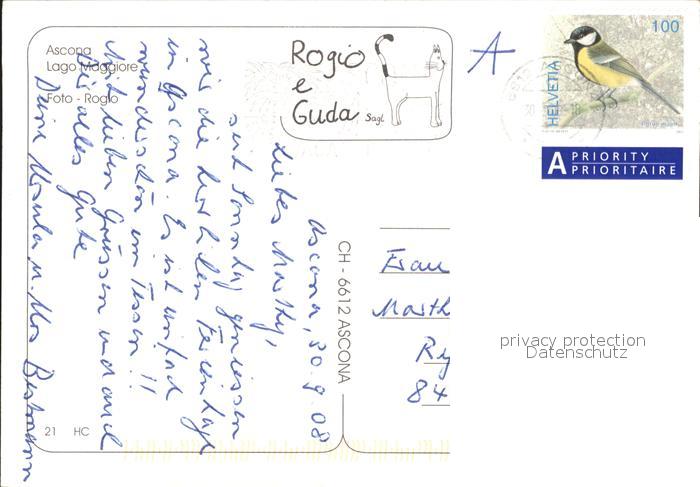 Ascona
Lago Maggiore
Foto - Rogio
Rogio
e
Guda Sagl
A
100
HELVETIA
A PRIORITY
PRIORITAIRE
Ascona, 30.9.08
Liebes Marthy,
seit Sonntag geniessen
wir die herrlichen Ferientage
in Ascona. Es ist einfach
wunderschön im Tessin !!
Mit lieben Grüssen und
Dir alles Gute
Deine Ursula u.
CH - 6612 ASCONA
Frau
Marth
Ry
84
privacy protection
Datenschutz
21 HC